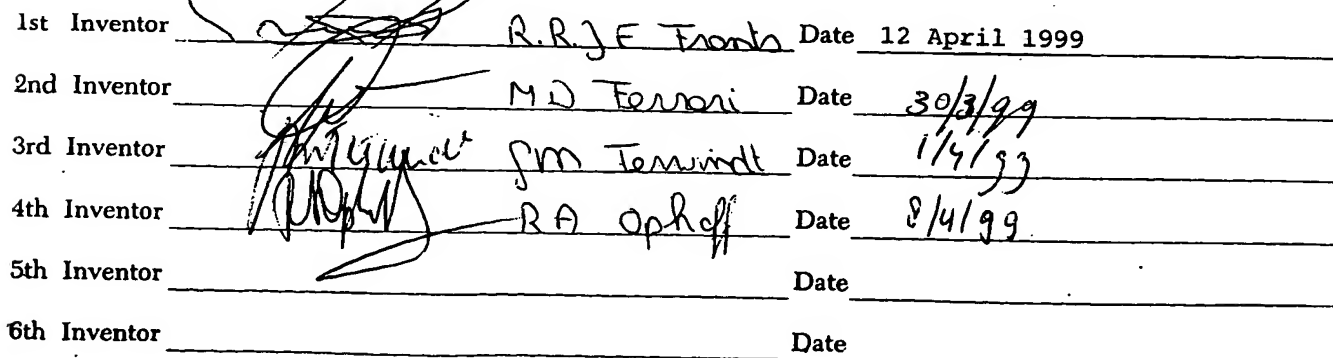 1st Inventor R.R.J E Frants Date 12 April 1999
2nd Inventor MD Ferrari Date 30/3/99
3rd Inventor GM Terwindt Date 1/4/99
4th Inventor RA Ophoff Date 8/4/99
5th Inventor Date
6th Inventor Date